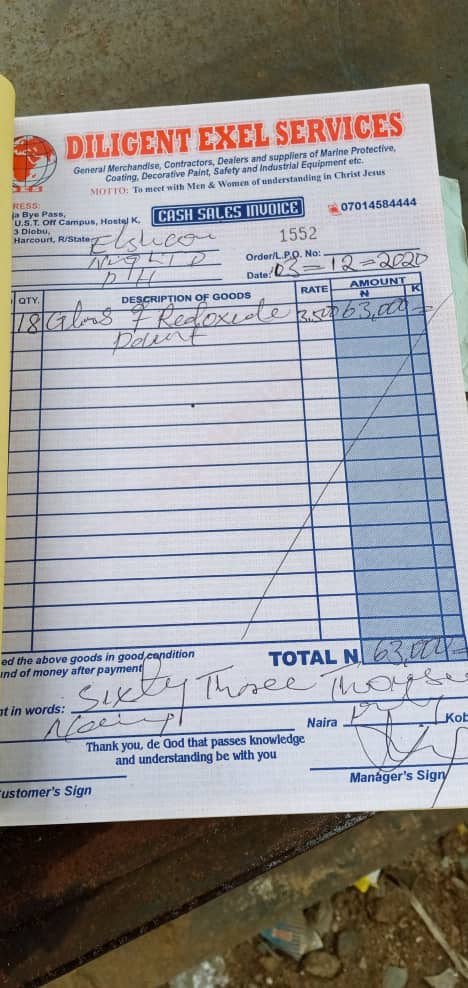 DILIGENT EXEL SERVICES
General Merchandise, Contractors, Dealers and suppliers of Marine Protective,
Coating, Decorative Paint, Safety and Industrial Equipment etc.
MOTTO: To meet with Men & Women of understanding in Christ Jesus
RESS:
a Bye Pass,
U.S.T. Off Campus, Hostel K,
3 Diobu,
Harcourt, R/State
CASH SALES INVOICE
07014584444
1552
Order/L.P.O. No:
PH
Date: 03-12-2020
QTY. DESCRIPTION OF GOODS RATE AMOUNT
N K
18 Glns of Redoxide 3,500 63,000=
Paint
ed the above goods in good condition
und of money after payment
TOTAL N 63,000=
nt in words: Sixty Three Thousa
Naira
Naira Kob
Thank you, de God that passes knowledge
and understanding be with you
ustomer's Sign
Manager's Sign